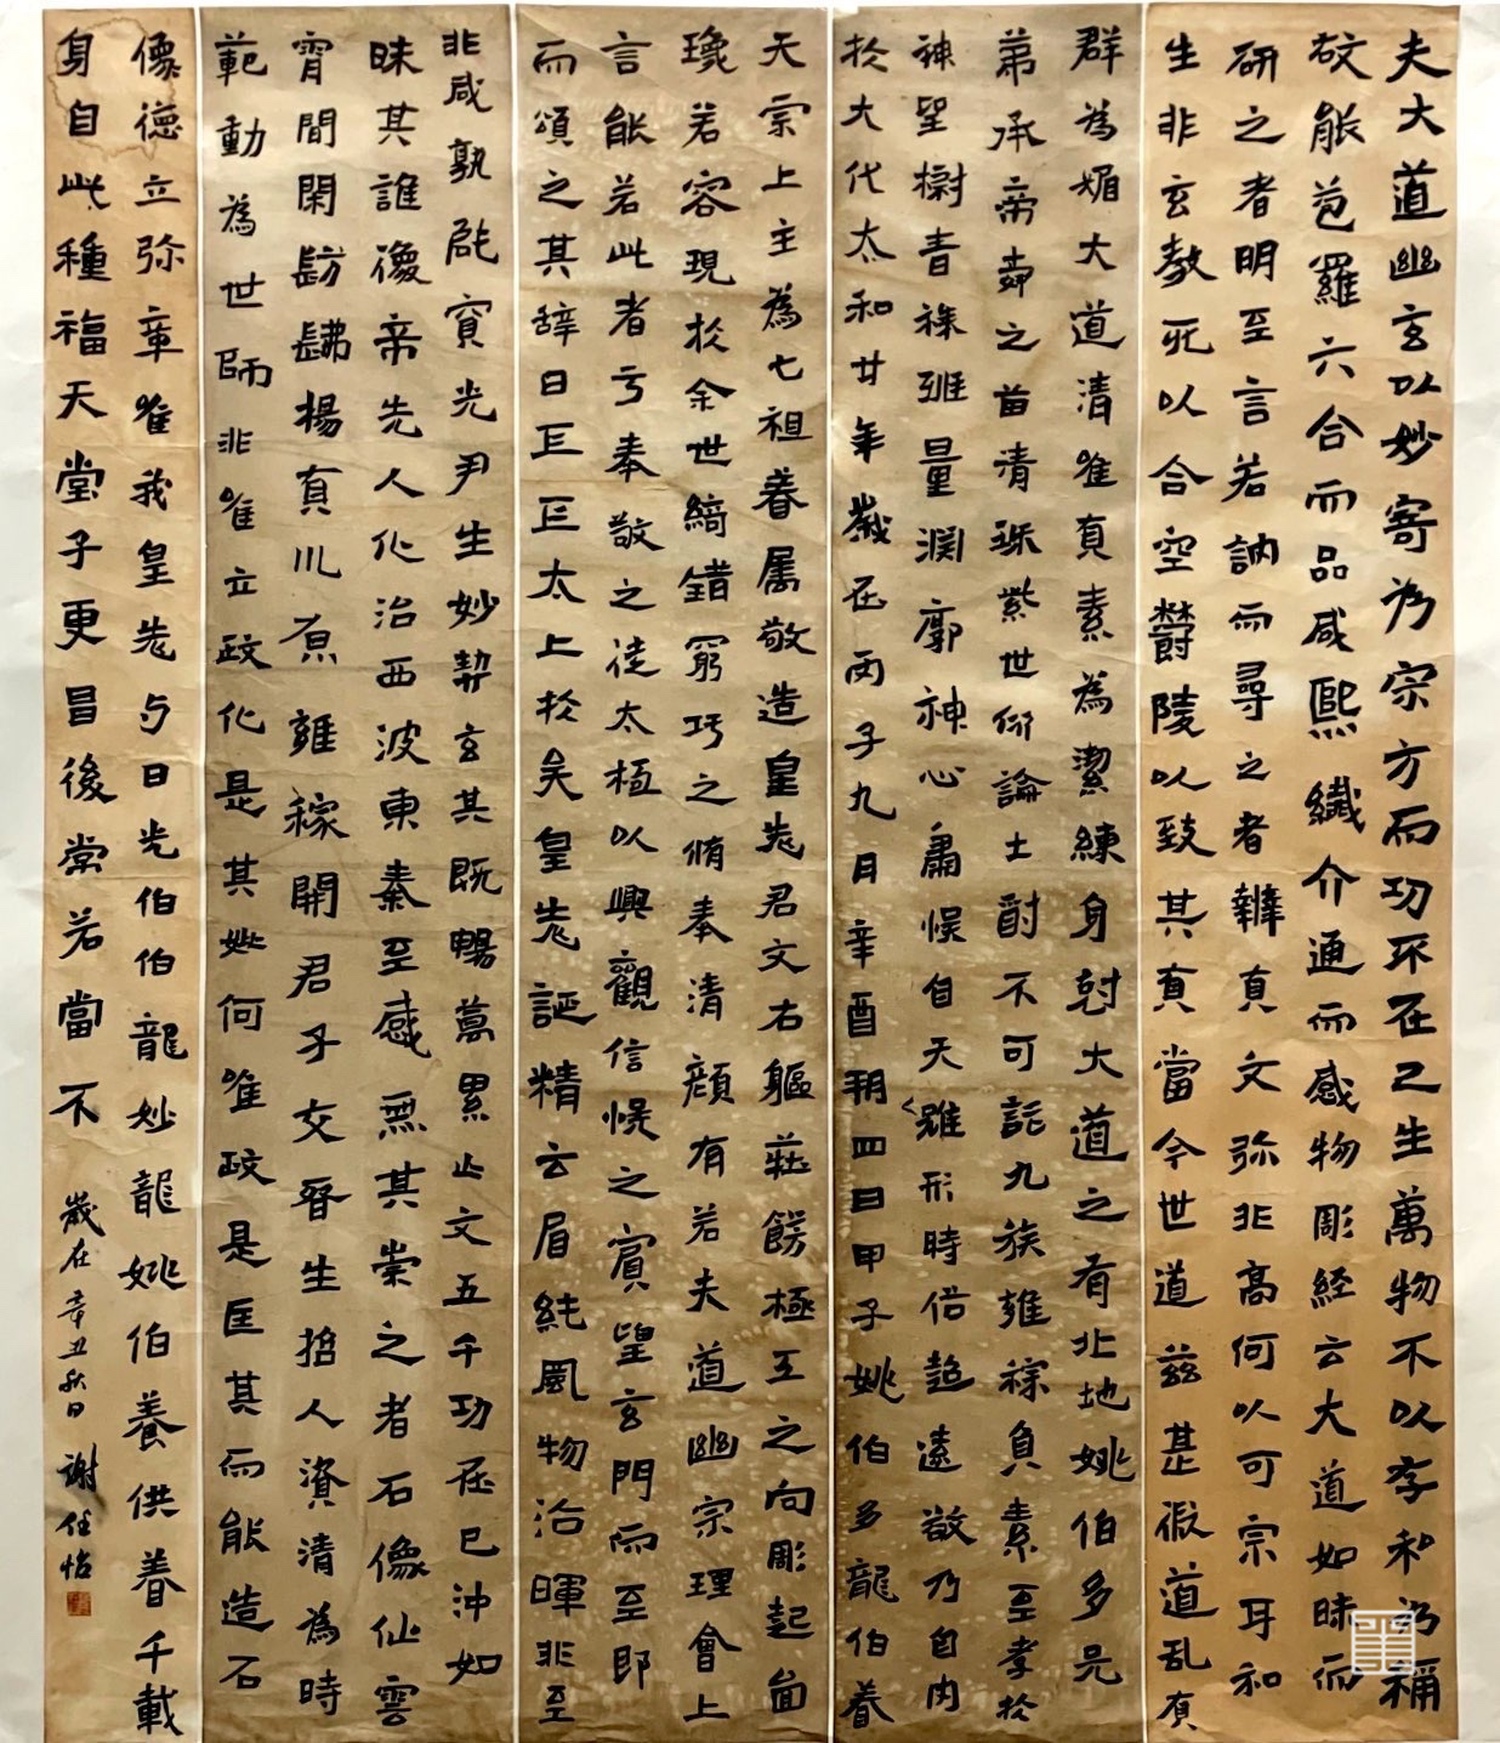 夫大道幽玄以妙寄为宗方而功不在己生萬物不以存和为稱
故能苞羅六合而品咸熙纖介通而感物彫経云大道如昧而
研之者明至言若訥而尋之者辯真文弥非高何以可宗耳和
生非玄教死以合空欝陵以致其真當今世道兹甚假道乱真
群為媚大道清唯真素為潔練身尅大道之有北地姚伯多兄
弟承帝舜之苗清珠紫世俯論士酎不可託九族雍綜負素至孝於
神望樹青祿班量淵廓神心肅悮自天雖形時俗超遠敬乃自内
於大代太和廿年歲在丙子九月辛酉朔四日甲子姚伯多龍伯眷
天宗上主為七祖眷属敬造皇先君文右軀莊餝極工之向彫起面
瓊若容現於余世綺錯窮巧之脩奉清顔有若夫道幽宗理會上
言能若此者亏奉敬之徒太極以興觀信悮之賓望玄門而至即
而頌之其辞曰正正太上於吴皇先誕精云眉純風物治暉非至
非咸孰能寶光尹生妙契玄其既暢萬累止文五千功在已沖如
昧其誰像帝先人化治西波東秦至感無其崇之者石像仙雲
霄間閑髣髴揚真川原雍稼開君子交晉生招人資清為時
範動為世師非唯立政化是其姚何唯政是匡其而能造石
像德立弥章唯我皇先与日光伯伯龍妙龍姚伯養供眷千載
身自此種福天堂子更昌後常若當不 歲在辛丑秋日謝任怡